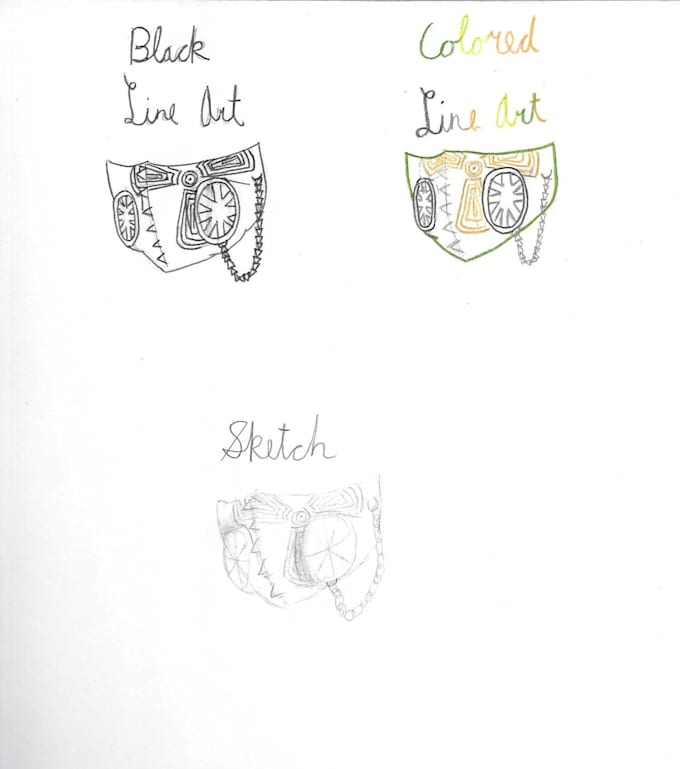 Black
Line Art
Colored
Line Art
Sketch